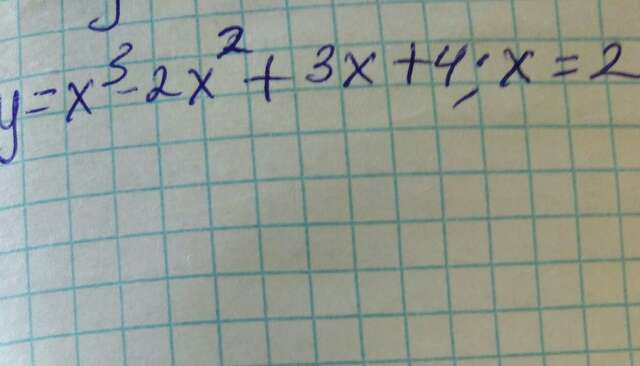 y = x³ - 2x² + 3x + 4; x = 2